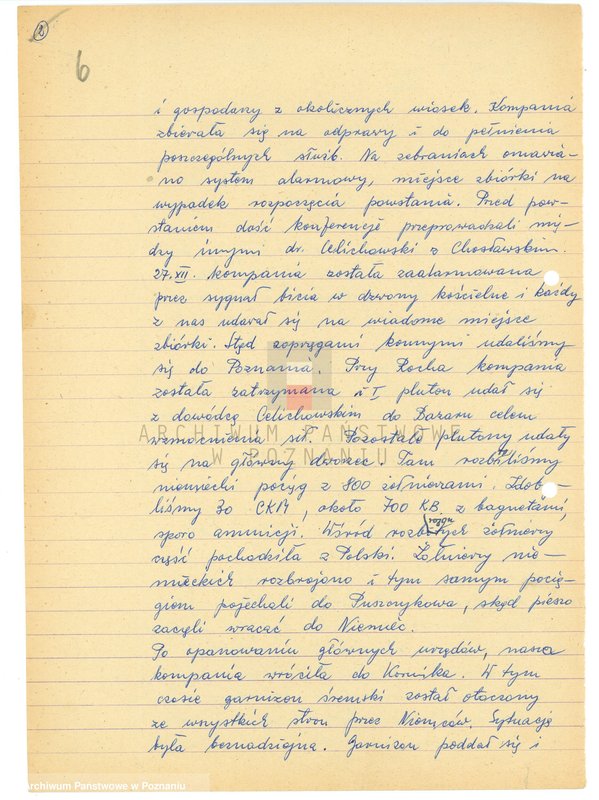 2
6
i gospodarzy z okolicznych wiosek. Kompania
zbierała się na odprawy i do pełnienia
poszczególnych służb. Na zebraniach omawia-
no system alarmowy, miejsce zbiórki na
wypadek rozpoczęcia powstania. Przed pow-
staniem dość konferencje przeprowadzali mię-
dzy innymi dr. Celichowski z Chosławskim.
27.XII. kompania została zaalarmowana
przez sygnał bicia w dzwony kościelne i każdy
z nas udawał się na wiadome miejsce
zbiórki. Stąd zaprzęgami konnymi udaliśmy
się do Poznania. Przy Rocha kompania
została zatrzymana i I pluton udał się
z dowódcą Celichowskim do Bazaru celem
wzmocnienia sił. Pozostałe plutony udały
się na główny dworzec. Tam rozbiliśmy
niemiecki pociąg z 800 żołnierzami. Zdob-
liśmy 30 CKM, około 700 KB. z bagnetami,
sporo amunicji. Wśród rozbitych żołnierzy
część pochodziła z Polski. Żołnierzy nie-
mieckich rozbrojono i tym samym pocią-
giem pojechali do Puszczykowa, skąd pieszo
zaczęli wracać do Niemiec.
Po opanowaniu głównych urzędów, nasza
kompania wróciła do Kórnika. W tym
czasie garnizon śremski został otoczony
ze wszystkich stron przez Niemców. Sytuacja
była beznadziejna. Garnizon poddał się i
ARCHIWUM PAŃSTWOWE
W POZNANIU
Archiwum Państwowe w Poznaniu